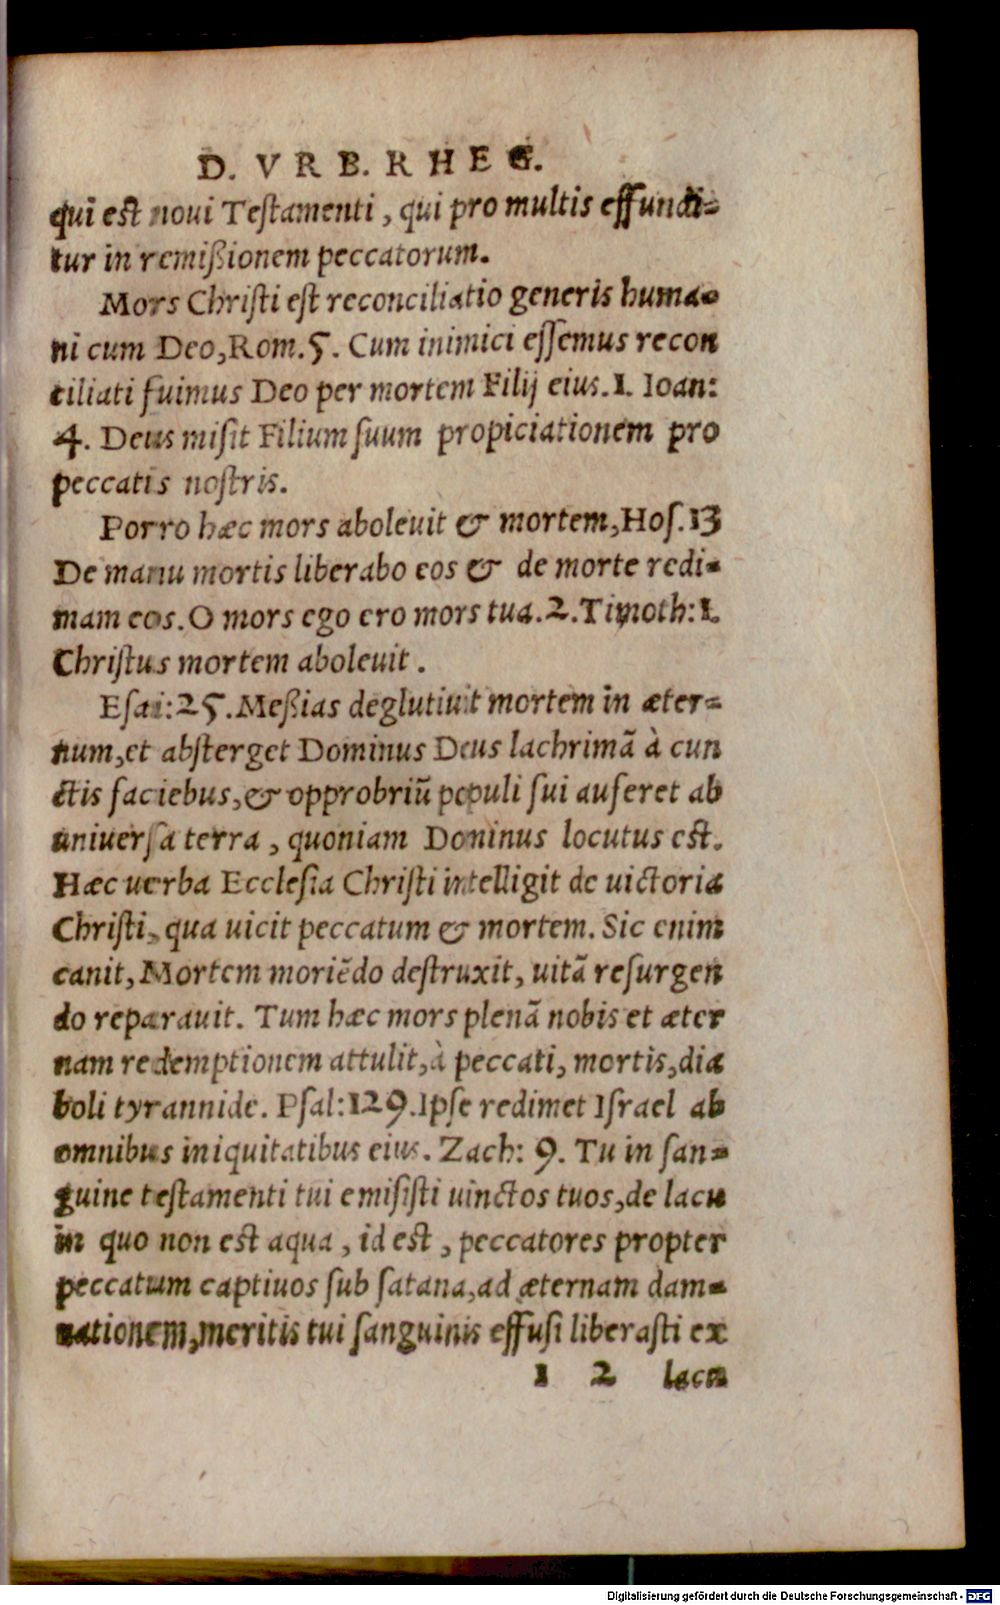 D. VRB. RHEG.
qui est noui Testamenti, qui pro multis effundi-
tur in remißionem peccatorum.
Mors Christi est reconciliatio generis huma-
ni cum Deo, Rom. 5. Cum inimici essemus recon
ciliati fuimus Deo per mortem Filij eius. 1. Ioan:
4. Deus misit Filium suum propiciationem pro
peccatis nostris.
Porro hæc mors aboleuit & mortem, Hos. 13
De manu mortis liberabo eos & de morte redi-
mam eos. O mors ego ero mors tua. 2. Timoth: 1.
Christus mortem aboleuit.
Esai: 25. Meßias deglutiuit mortem in æter-
num, et absterget Dominus Deus lachrimā à cun
ctis faciebus, & opprobriū populi sui auferet ab
uniuersa terra, quoniam Dominus locutus est.
Hæc uerba Ecclesia Christi intelligit de uictoria
Christi, qua uicit peccatum & mortem. Sic enim
canit, Mortem moriēdo destruxit, uitā resurgen
do reparauit. Tum hæc mors plenā nobis et æter
nam redemptionem attulit, à peccati, mortis, dia
boli tyrannide. Psal: 129. Ipse redimet Israel ab
omnibus iniquitatibus eius. Zach: 9. Tu in san-
guine testamenti tui emisisti uinctos tuos, de lacu
in quo non est aqua, id est, peccatores propter
peccatum captiuos sub satana, ad æternam dam-
nationem, meritis tui sanguinis effusi liberasti ex
1 2 lacu
Digitalisierung gefördert durch die Deutsche Forschungsgemeinschaft - DFG